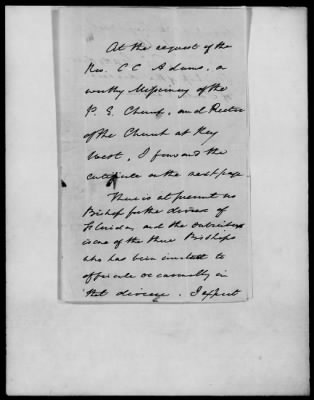 At the request of the
Rev. C C Adams, a
worthy Missionary of the
P. E. Church, and Rector
of the Church at Key
West, I forward the
certificate on the next page.
There is at present no
Bishop for the diocese of
Florida, and the subscriber
is one of the three Bishops
who has been invited to
officiate occasionally in
that diocese. I expect